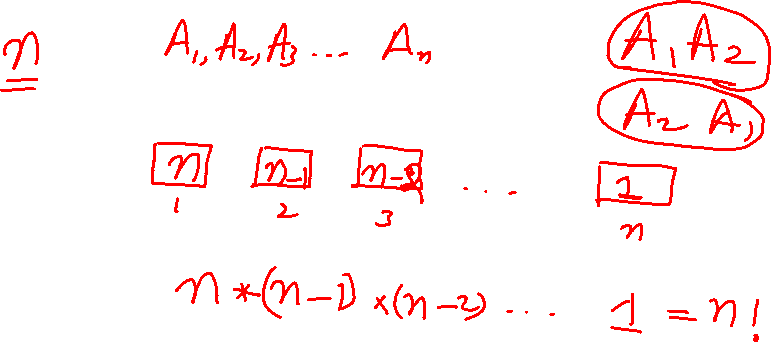 n A₁, A₂, A₃ ... Aₙ A₁ A₂
A₂ A₁
n n-1 n-2 ... 1
1 2 3 n
n * (n-1) × (n-2) ... 1 = n!